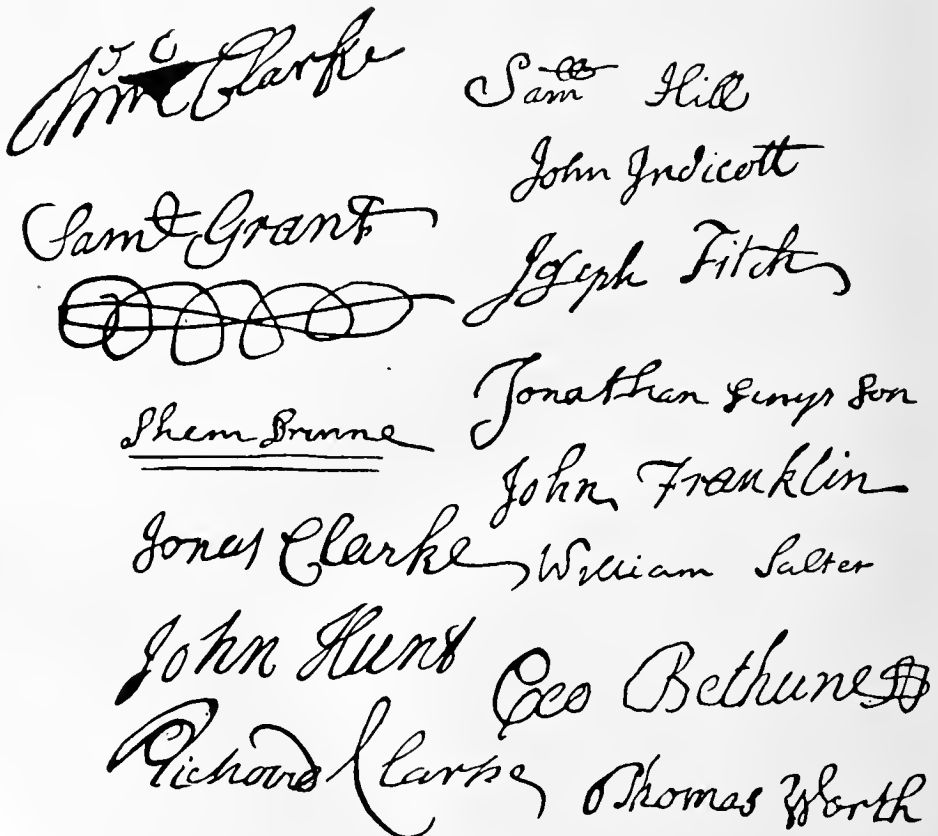 Clarke
Sam^ll Grant
Shem Brinne
Jonas Clarke
John Hunt
Richard Clarke
Sam^ll Hill
John Indicott
Joseph Fitch
Jonathan Simpson
John Franklin
William Salter
Geo Bethune
Thomas Worth